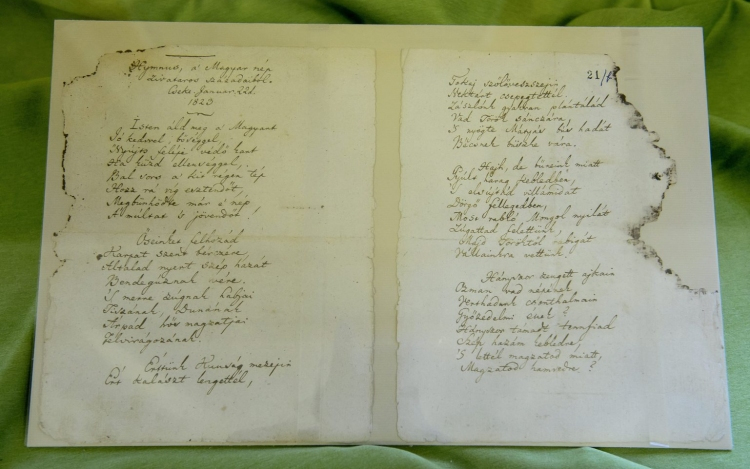 Hymnus, a' Magyar nép
zivataros századaiból.
Cseke Január. 22d.
1823
Isten áldd meg a' Magyart
Jó kedvvel, bőséggel,
Nyújts feléje védő kart
Ha küzd ellenséggel;
Bal sors a' kit régen tép
Hozz rá víg esztendőt,
Megbűnhődte már e' nép
A' múltat 's jövendőt!
Őseinket felhozád
Kárpát szent bérczére,
Általad nyert szép hazát
Bendegúznak vére.
'S merre zúgnak habjai
Tiszának, Dunának
Árpád hős magzatjai
Felvirágozának.
Értünk Kunság mezejin
Ért kalászt lengettél,
21/
Tokaj szőlővesszejin
Nektárt csepegtettél.
Zászlónk gyakran plántálád
Vad Török sánczára,
'S nyögte Mátyás bús hadát
Bécsnek büszke vára.
Hajh, de bűneink miatt
Gyúlt harag kebledben,
'S elsújtád villámidat
Dörgő fellegedben,
Most rabló Mongol nyilát
Zúgattad felettünk,
Majd Töröktől rabigát
Vállainkra vettünk.
Hányszor zengett ajkain
Ozman vad népének
Vert hadunk csonthalmain
Győzedelmi ének?
Hányszor támadt tennfiad
Szép hazám kebledre,
'S lettél magzatod miatt,
Magzatod hamvvedre?